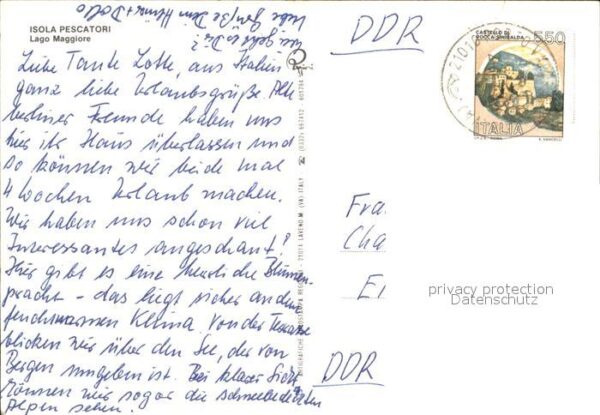 ISOLA PESCATORI
Lago Maggiore
Liebe Tante Lotte, aus Italien
ganz liebe Urlaubsgrüße. Alte
Berliner Freunde haben uns
hier ihr Haus überlassen und
so können wir beide mal
4 Wochen Urlaub machen.
Wir haben uns schon viel
Interessantes angeschaut!
Hier gibt es eine herrliche Blüten-
pracht - das liegt sicher an dem
feuchtwarmen Klima. Von der Terrasse
blicken wir über den See, der von
Bergen umgeben ist. Bei klarer Sicht
können wir sogar die schneebedeckten
Alpen sehen.
Wie geht es Dir?
liebe Grüße Dein
DDR
CASTELLO DI
ROCCA SINIBALDA
550
ITALIA
21010
Fra
Cha
E
DDR
privacy protection
Datenschutz
21014 LAVENO M. (VA) ITALY